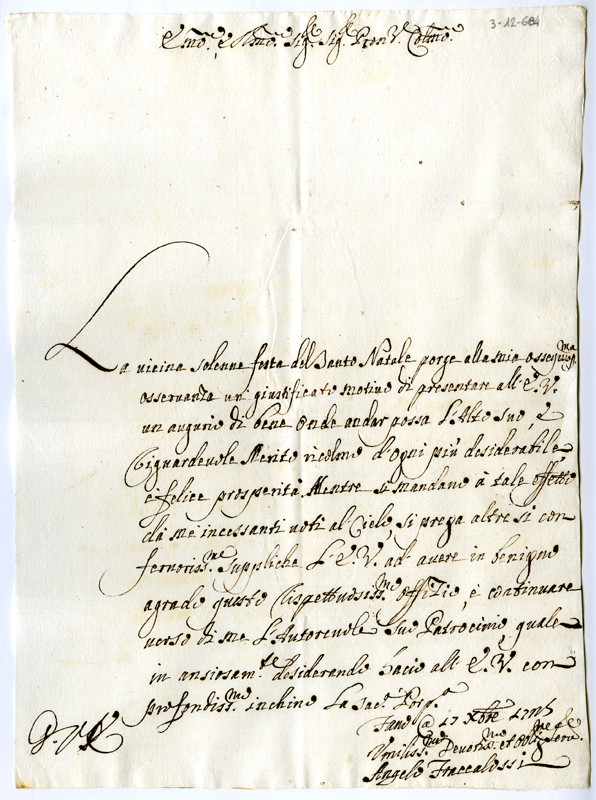 3-12-684
Em̃o, e Rm̃o Sig.r Sig.r Pron. Colm̃o
La vicina solenne festa del Santo Natale porge alla mia ossequiosma
osservanza un' giustificato motivo di presentare all' E. V.
un augurio di bene onde andar possa l'Alto suo, e
Riguardevole Merito ricolmo d'ogni più desiderabile,
e felice prosperità. Mentre si mandano à tale effetto
da me incessanti voti al Cielo, si prega altresi con
fervoriss.me suppliche l'E. V. ad' avere in benigno
agrado questo Rispettuosiss.mo offizio, e continuare
verso di me l'Autorevole suo Patrocinio, quale
in ansiosam.te desiderando bacio all' E. V. con
profondiss.mo inchino la Sac.a Porp.a
Fano @ 17 Xbre
Umiliss.mo Devotis.mo et Obblig.mo Serv.
Angelo Fraccalossi